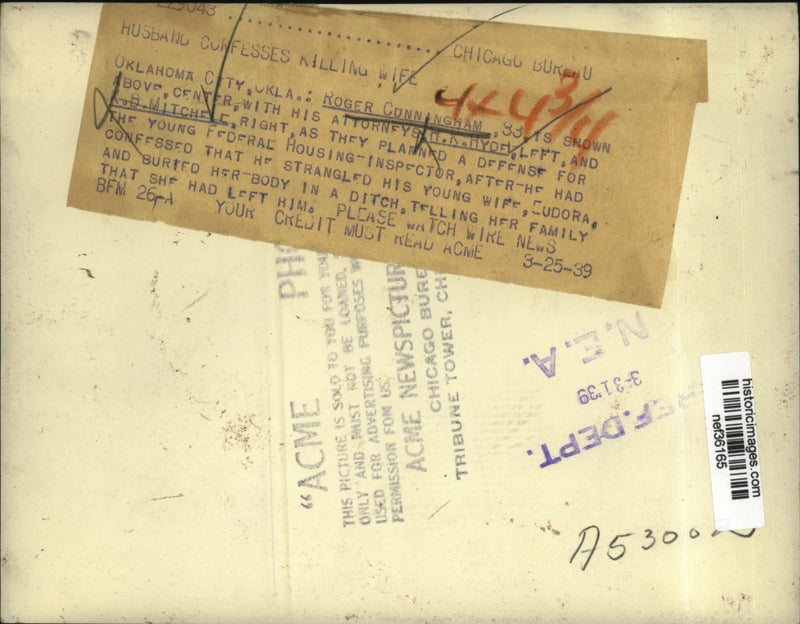 229043 ........................ CHICAGO BUREAU
HUSBAND CONFESSES KILLING WIFE
OKLAHOMA CITY, OKLA.: ROGER CUNNINGHAM, 33, IS SHOWN
ABOVE, CENTER, WITH HIS ATTORNEYS H.K.HYDE, LEFT, AND
MITCHELL, RIGHT, AS THEY PLANNED A DEFENSE FOR
THE YOUNG FEDERAL HOUSING-INSPECTOR, AFTER-HE HAD
CONFESSED THAT HE STRANGLED HIS YOUNG WIFE, EUDORA,
AND BURIED HER-BODY IN A DITCH, TELLING HER FAMILY
THAT SHE HAD LEFT HIM. PLEASE WATCH WIRE NEWS
BFM 26-A YOUR CREDIT MUST READ ACME 3-25-39
"ACME PHO
THIS PICTURE IS SOLD TO YOU FOR YOU
ONLY AND MUST NOT BE LOANED,
USED FOR ADVERTISING PURPOSES W
PERMISSION FOM US.
ACME NEWSPICTUR
CHICAGO BURE
TRIBUNE TOWER, CH
N.E.A.
3-31'39
REF.DEPT.
historicimages.com
nef36165